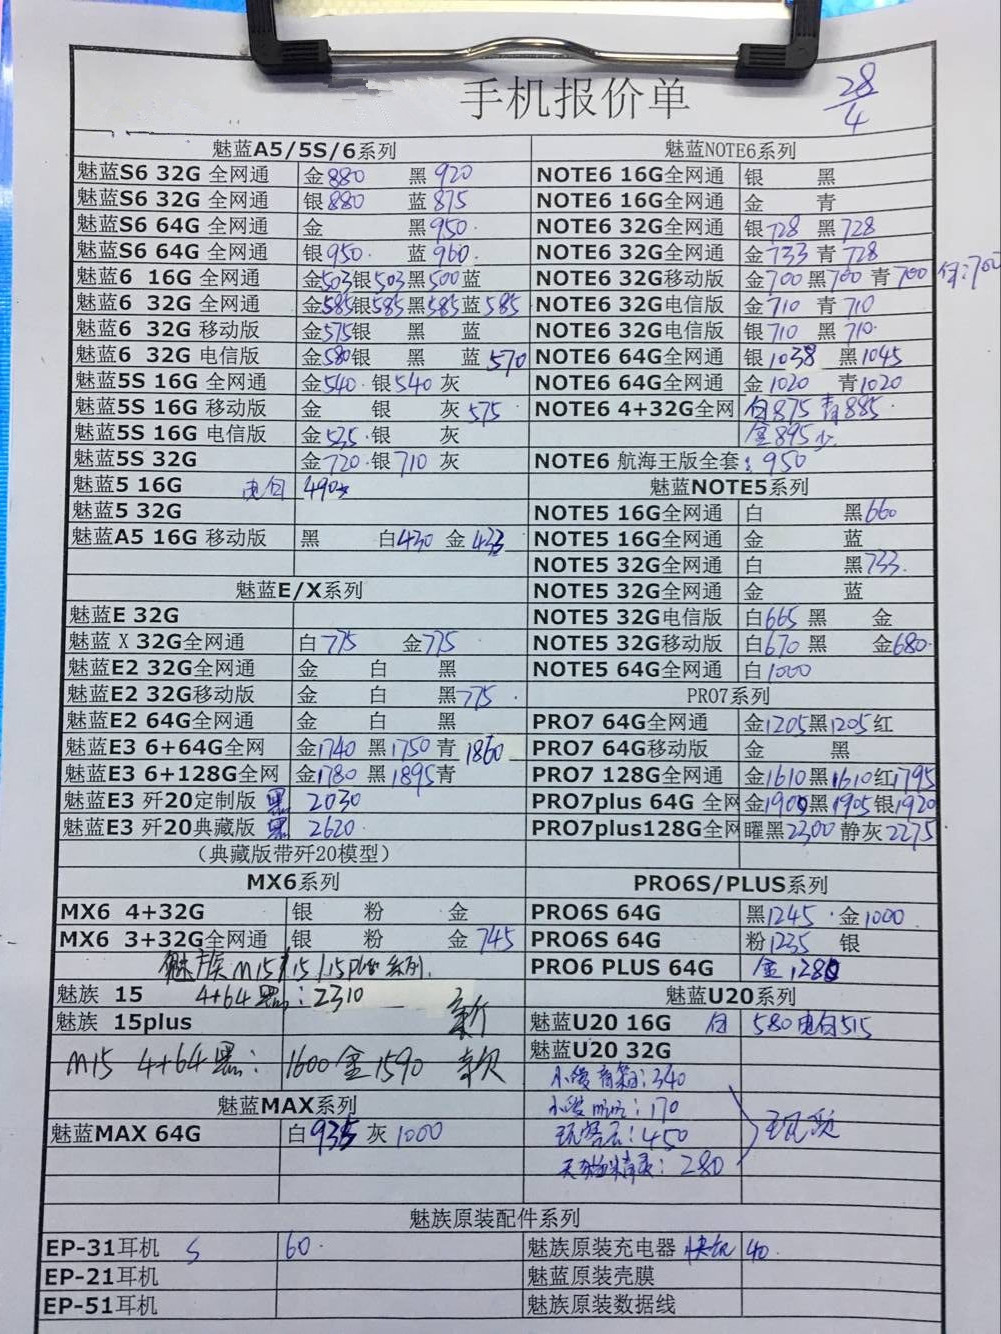 手机报价单
28/4
魅蓝A5/5S/6系列
魅蓝S6 32G 全网通 金880 黑920
魅蓝S6 32G 全网通 银880 蓝875
魅蓝S6 64G 全网通 金 黑950
魅蓝S6 64G 全网通 银950 蓝960
魅蓝6 16G 全网通 金503银503黑500蓝
魅蓝6 32G 全网通 金585银585黑585蓝585
魅蓝6 32G 移动版 金575银 黑 蓝
魅蓝6 32G 电信版 金580银 黑 蓝570
魅蓝5S 16G 全网通 金540 银540 灰
魅蓝5S 16G 移动版 金 银 灰575
魅蓝5S 16G 电信版 金525 银 灰
魅蓝5S 32G 金720 银710 灰
魅蓝5 16G 电白 490
魅蓝5 32G
魅蓝A5 16G 移动版 黑 白430 金433
魅蓝E/X系列
魅蓝E 32G
魅蓝 X 32G全网通 白775 金775
魅蓝E2 32G全网通 金 白 黑
魅蓝E2 32G移动版 金 白 黑775
魅蓝E2 64G全网通 金 白 黑
魅蓝E3 6+64G全网 金1740 黑1750 青1860
魅蓝E3 6+128G全网 金1780 黑1895青
魅蓝E3 歼20定制版 黑 2030
魅蓝E3 歼20典藏版 黑 2620
（典藏版带歼20模型）
MX6系列
MX6 4+32G 银 粉 金
MX6 3+32G全网通 银 粉 金745
魅族M15/15/15plus系列
魅族 15 4+64黑：2310
魅族 15plus
M15 4+64黑：1600 金1590 新款
魅蓝MAX系列
魅蓝MAX 64G 白935 灰1000
魅蓝NOTE6系列
NOTE6 16G全网通 银 黑
NOTE6 16G全网通 金 青
NOTE6 32G全网通 银728 黑728
NOTE6 32G全网通 金733 青728
NOTE6 32G移动版 金700黑700 青700 白:700
NOTE6 32G电信版 金710 青710
NOTE6 32G电信版 银710 黑710
NOTE6 64G全网通 银1038 黑1045
NOTE6 64G全网通 金1020 青1020
NOTE6 4+32G全网 白875 青885
金895少
NOTE6 航海王版全套：950
魅蓝NOTE5系列
NOTE5 16G全网通 白 黑660
NOTE5 16G全网通 金 蓝
NOTE5 32G全网通 白 黑733
NOTE5 32G全网通 金 蓝
NOTE5 32G电信版 白665 黑 金
NOTE5 32G移动版 白670 黑 金680
NOTE5 64G全网通 白1000
PRO7系列
PRO7 64G全网通 金1205黑1205红
PRO7 64G移动版 金 黑
PRO7 128G全网通 金1610黑1610红1795
PRO7plus 64G 全网 金1900黑1905银1920
PRO7plus128G全网 曜黑2300 静灰2275
PRO6S/PLUS系列
PRO6S 64G 黑1245 金1000
PRO6S 64G 粉1235 银
PRO6 PLUS 64G 金1280
魅蓝U20系列
魅蓝U20 16G 白 580电白515
魅蓝U20 32G
340
170
450
天猫精灵：280
魅族原装配件系列
EP-31耳机 60
魅族原装充电器 快充 40
EP-21耳机
魅蓝原装壳膜
EP-51耳机
魅族原装数据线